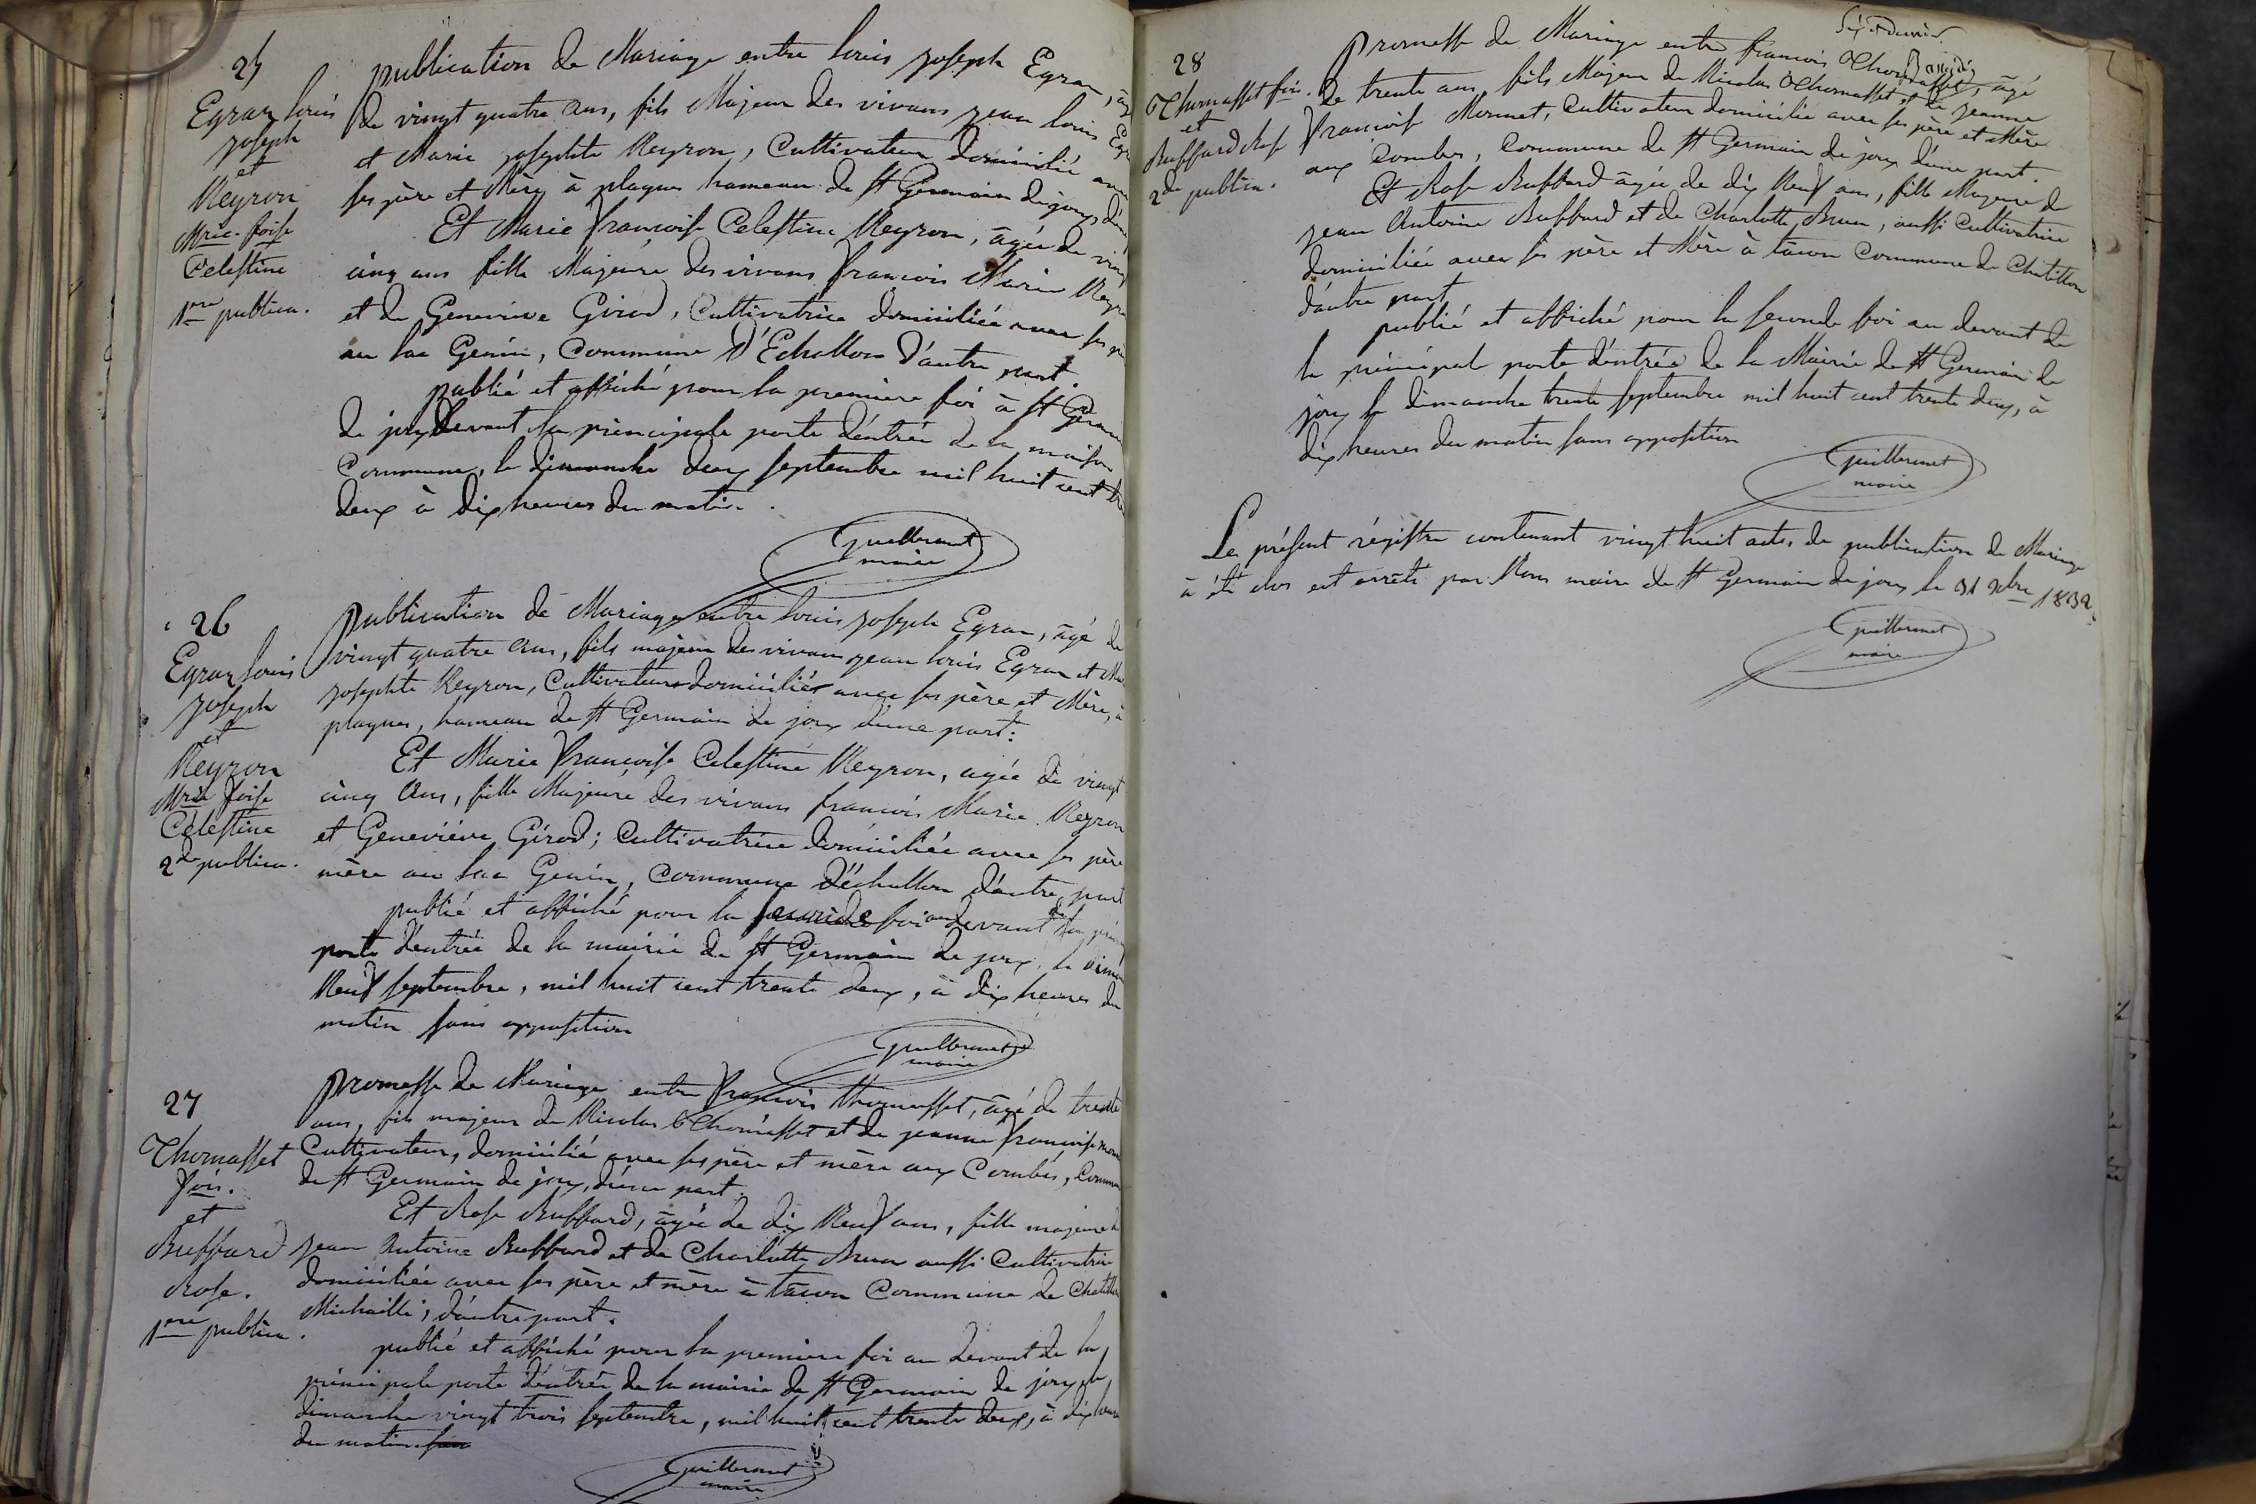 25
Egraz Louis
joseph
et
Reyron
Mrie. foise
Celestine
1ere publica.
publication de Mariage entre louis joseph Egraz, âgé
de vingt quatre ans, fils Majeur des vivans jean louis Egr
et Marie josephte Reyron, Cultivateur domicilié avec
ses père et Mère à plagnes hameau de St Germain de joux d'une
Et Marie françoise Celestine Reyron, âgée de vingt
cinq ans fille Majeure des vivans françois Marie Reyron
et de Genevieve Girod, Cultivatrice domiciliée avec ses pè
au lac Genin, Commune d'Echallon d'autre part.
publié et affiché pour la premiere foi à St Germain
de joux devant la principale porte d'entrée de la maison
Commune, le dimanche deux septembre mil huit cent tre
deux à dix heures du matin.
Guillermet
maire
26
Egraz Louis
joseph
et
Reyron
Mrie foise
Célestine
2de publica.
Publication de Mariage entre louis joseph Egraz, âgé de
vingt quatre ans, fils majeur des vivans jean louis Egraz et Ma
josephte Reyron, Cultivateur domicilié avec ses père et Mère, à
plagnes, hameau de St Germain de joux d'une part:
Et Marie françoise Celestine Reyron, agée de vingt
cinq ans, fille Majeure des vivans françois Marie Reyron
et Geneviève Girod; Cultivatrice domiciliée avec ses père
mère au lac Genin, Commune d'échallon d'autre part
publié et affiché pour la seconde foi au devant de la prin
porte d'entrée de la mairie de St Germain de joux le diman
Neuf septembre, mil huit cent trente deux, à dix heures du
matin sans opposition
Guillermet
maire
27
Thomasset
fois.
et
Buffard
Rose.
1ere publica.
promesse de Mariage entre François thomasset, âgé de trente
ans, fils majeur de Nicolas Thomasset et de jeanne françoise mon
Cultivateur, domicilié avec ses père et mère aux Combes, Commun
de St Germain de joux, d'une part.
Et Rose Buffard, âgée de dix Neuf ans, fille majeure de
jean Antoine Buffard et de Charlotte Brun aussi Cultivatrice
domiciliée avec ses père et mère à tacon Commune de Chatillon
Michaille, d'autre part.
publié et affiché pour la premiere foi au devant de la
principale porte d'entrée de la mairie de St Germain de joux le
dimanche vingt trois septembre, mil huit cent trente deux, à dix heures
du matin sans
Guillermet
maire
28
Thomasset fois.
et
Buffard Rose
2de publica.
promesse de Mariage entre françois Thomasset, âgé
de trente ans, fils Majeur de Nicolas Thomasset et de jeanne
françoise Monnet, Cultivateur domicilié avec ses père et Mère
aux Combes, Commune de St Germain de joux d'une part.
Et Rose Buffard âgée de dix Neuf ans, fille Majeure de
jean Antoine Buffard et de Charlotte Brun, aussi Cultivatrice
domiciliée avec ses père et Mère à tacon Commune de Chatillon
d'autre part
publié et affiché pour la seconde foi au devant de
la principale porte d'entrée de la Mairie de St Germain de
joux le dimanche trente septembre mil huit cent trente deux, à
dix heures du matin sans opposition
Guillermet
maire
Le présent régistre contenant vingt huit actes de publication de Mariage
à été clos est arrêté par Nous maire de St Germain de joux le 31 xbre 1832.
Guillermet
maire